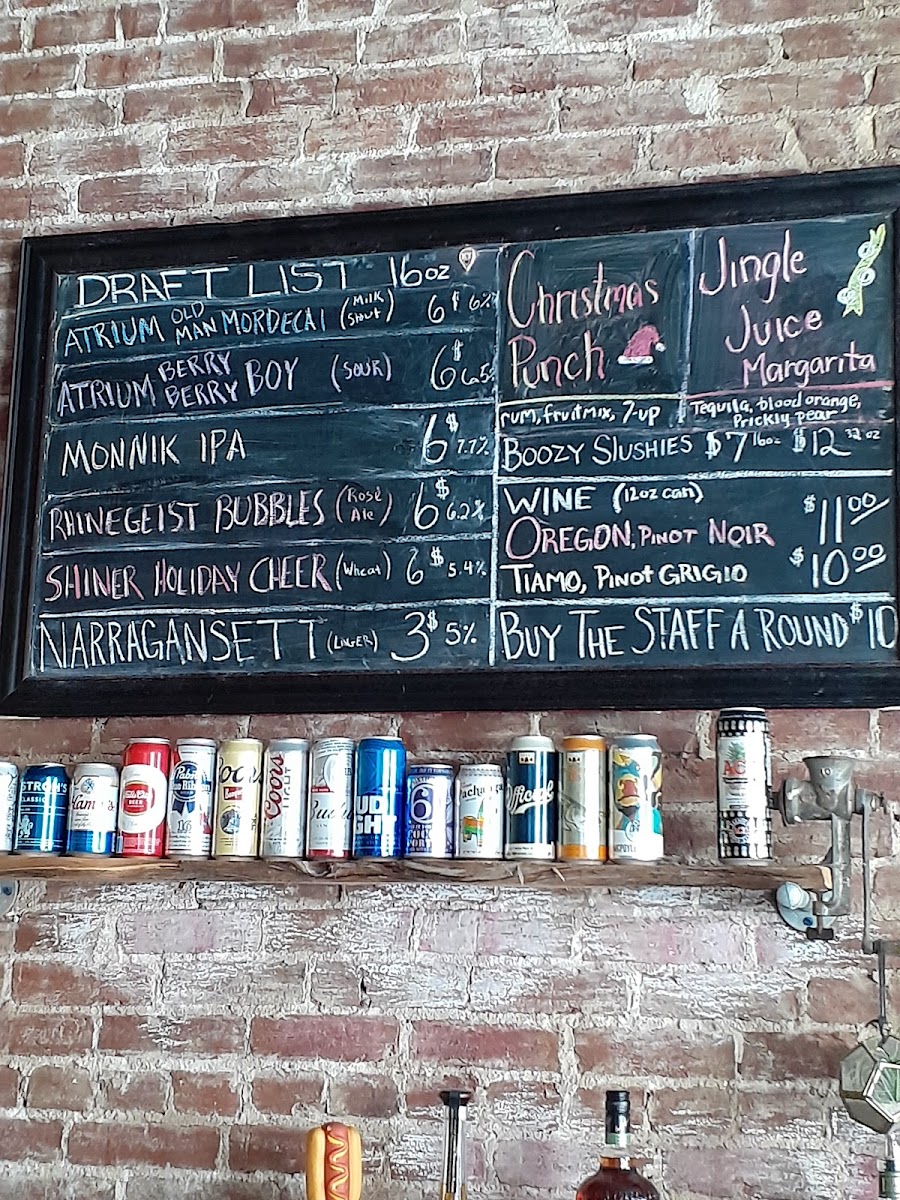 DRAFT LIST 16oz KY
ATRIUM OLD MAN MORDECAI (MILK STOUT) 6$ 6%
ATRIUM BERRY BERRY BOY (SOUR) 6$ 6.5%
MONNIK IPA 6$ 7.7%
RHINEGEIST BUBBLES (Rosé Ale) 6$ 6.2%
SHINER HOLIDAY CHEER (Wheat) 6$ 5.4%
NARRAGANSETT (LAGER) 3$ 5%
Christmas
Punch
rum, fruit mix, 7-up
Jingle
Juice
Margarita
Tequila, blood orange,
Prickly pear
BOOZY SLUSHIES $7 16oz $12 32oz
WINE (12oz can)
OREGON, PINOT NOIR $11.00
TIAMO, PINOT GRIGIO $10.00
BUY THE STAFF A ROUND $10
STROH'S
Hamm's
BEER
Pabst Blue Ribbon
16
Coors
Coors LIGHT
BUD LIGHT
6
Official